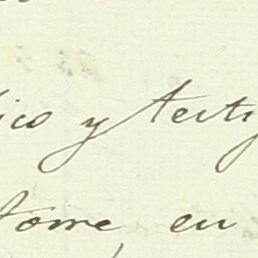 ico y testi
torre, en